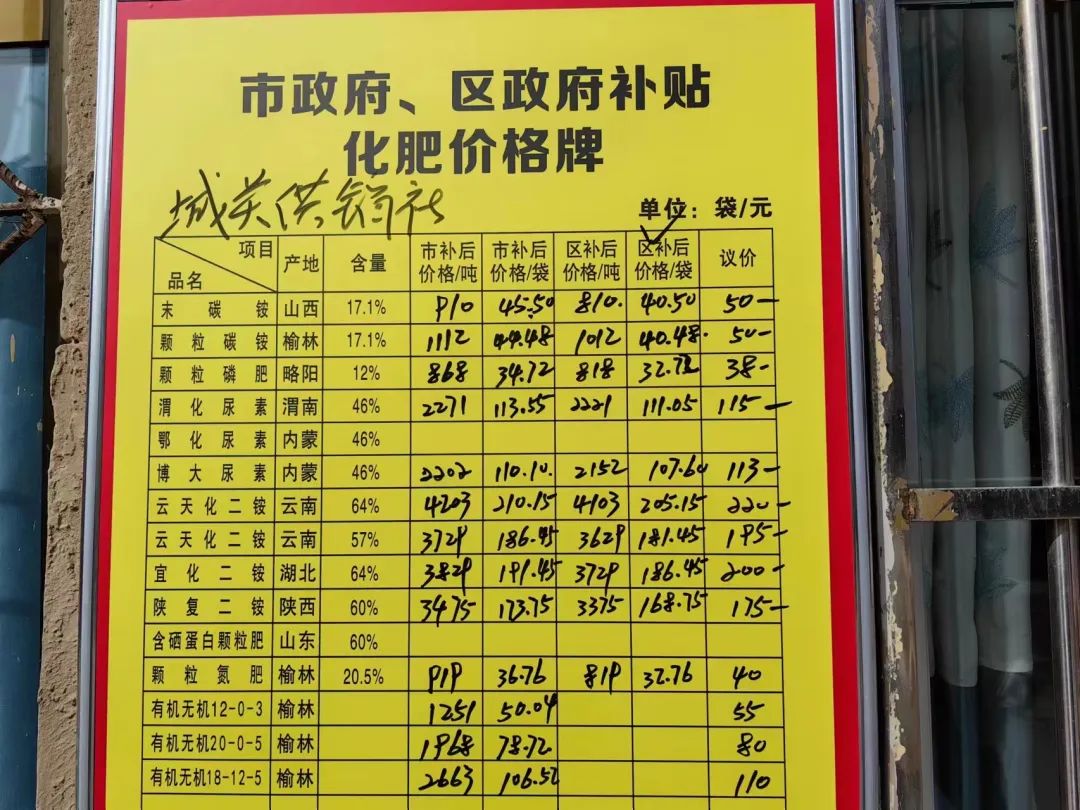 市政府、区政府补贴
化肥价格牌
城关供销社
单位：袋/元
项目 品名 产地 含量 市补后价格/吨 市补后价格/袋 区补后价格/吨 区补后价格/袋 议价
末碳铵 山西 17.1% 910 45.50 810. 40.50 50—
颗粒碳铵 榆林 17.1% 1112 44.48 1012 40.48. 50—
颗粒磷肥 略阳 12% 868 34.72 818 32.72 38-
渭化尿素 渭南 46% 2271 113.55 2221 111.05 115—
鄂化尿素 内蒙 46%
博大尿素 内蒙 46% 2202 110.10. 2152 107.60 113—
云天化二铵 云南 64% 4203 210.15 4103 205.15 220—
云天化二铵 云南 57% 3729 186.45 3629 181.45 195—
宜化二铵 湖北 64% 3829 191.45 3729 186.45 200—
陕复二铵 陕西 60% 3475 173.75 3375 168.75 175—
含硒蛋白颗粒肥 山东 60%
颗粒氮肥 榆林 20.5% 919 36.76 819 32.76 40
有机无机12-0-3 榆林 1251 50.04 55
有机无机20-0-5 榆林 1968 78.72 80
有机无机18-12-5 榆林 2663 106.52 110